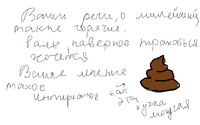 Ваши речи, о милейший
такие горячие.
Вам, наверное трахаться
хочется
Ваше мнение
такое
интересное как
эта
кучка
мощная